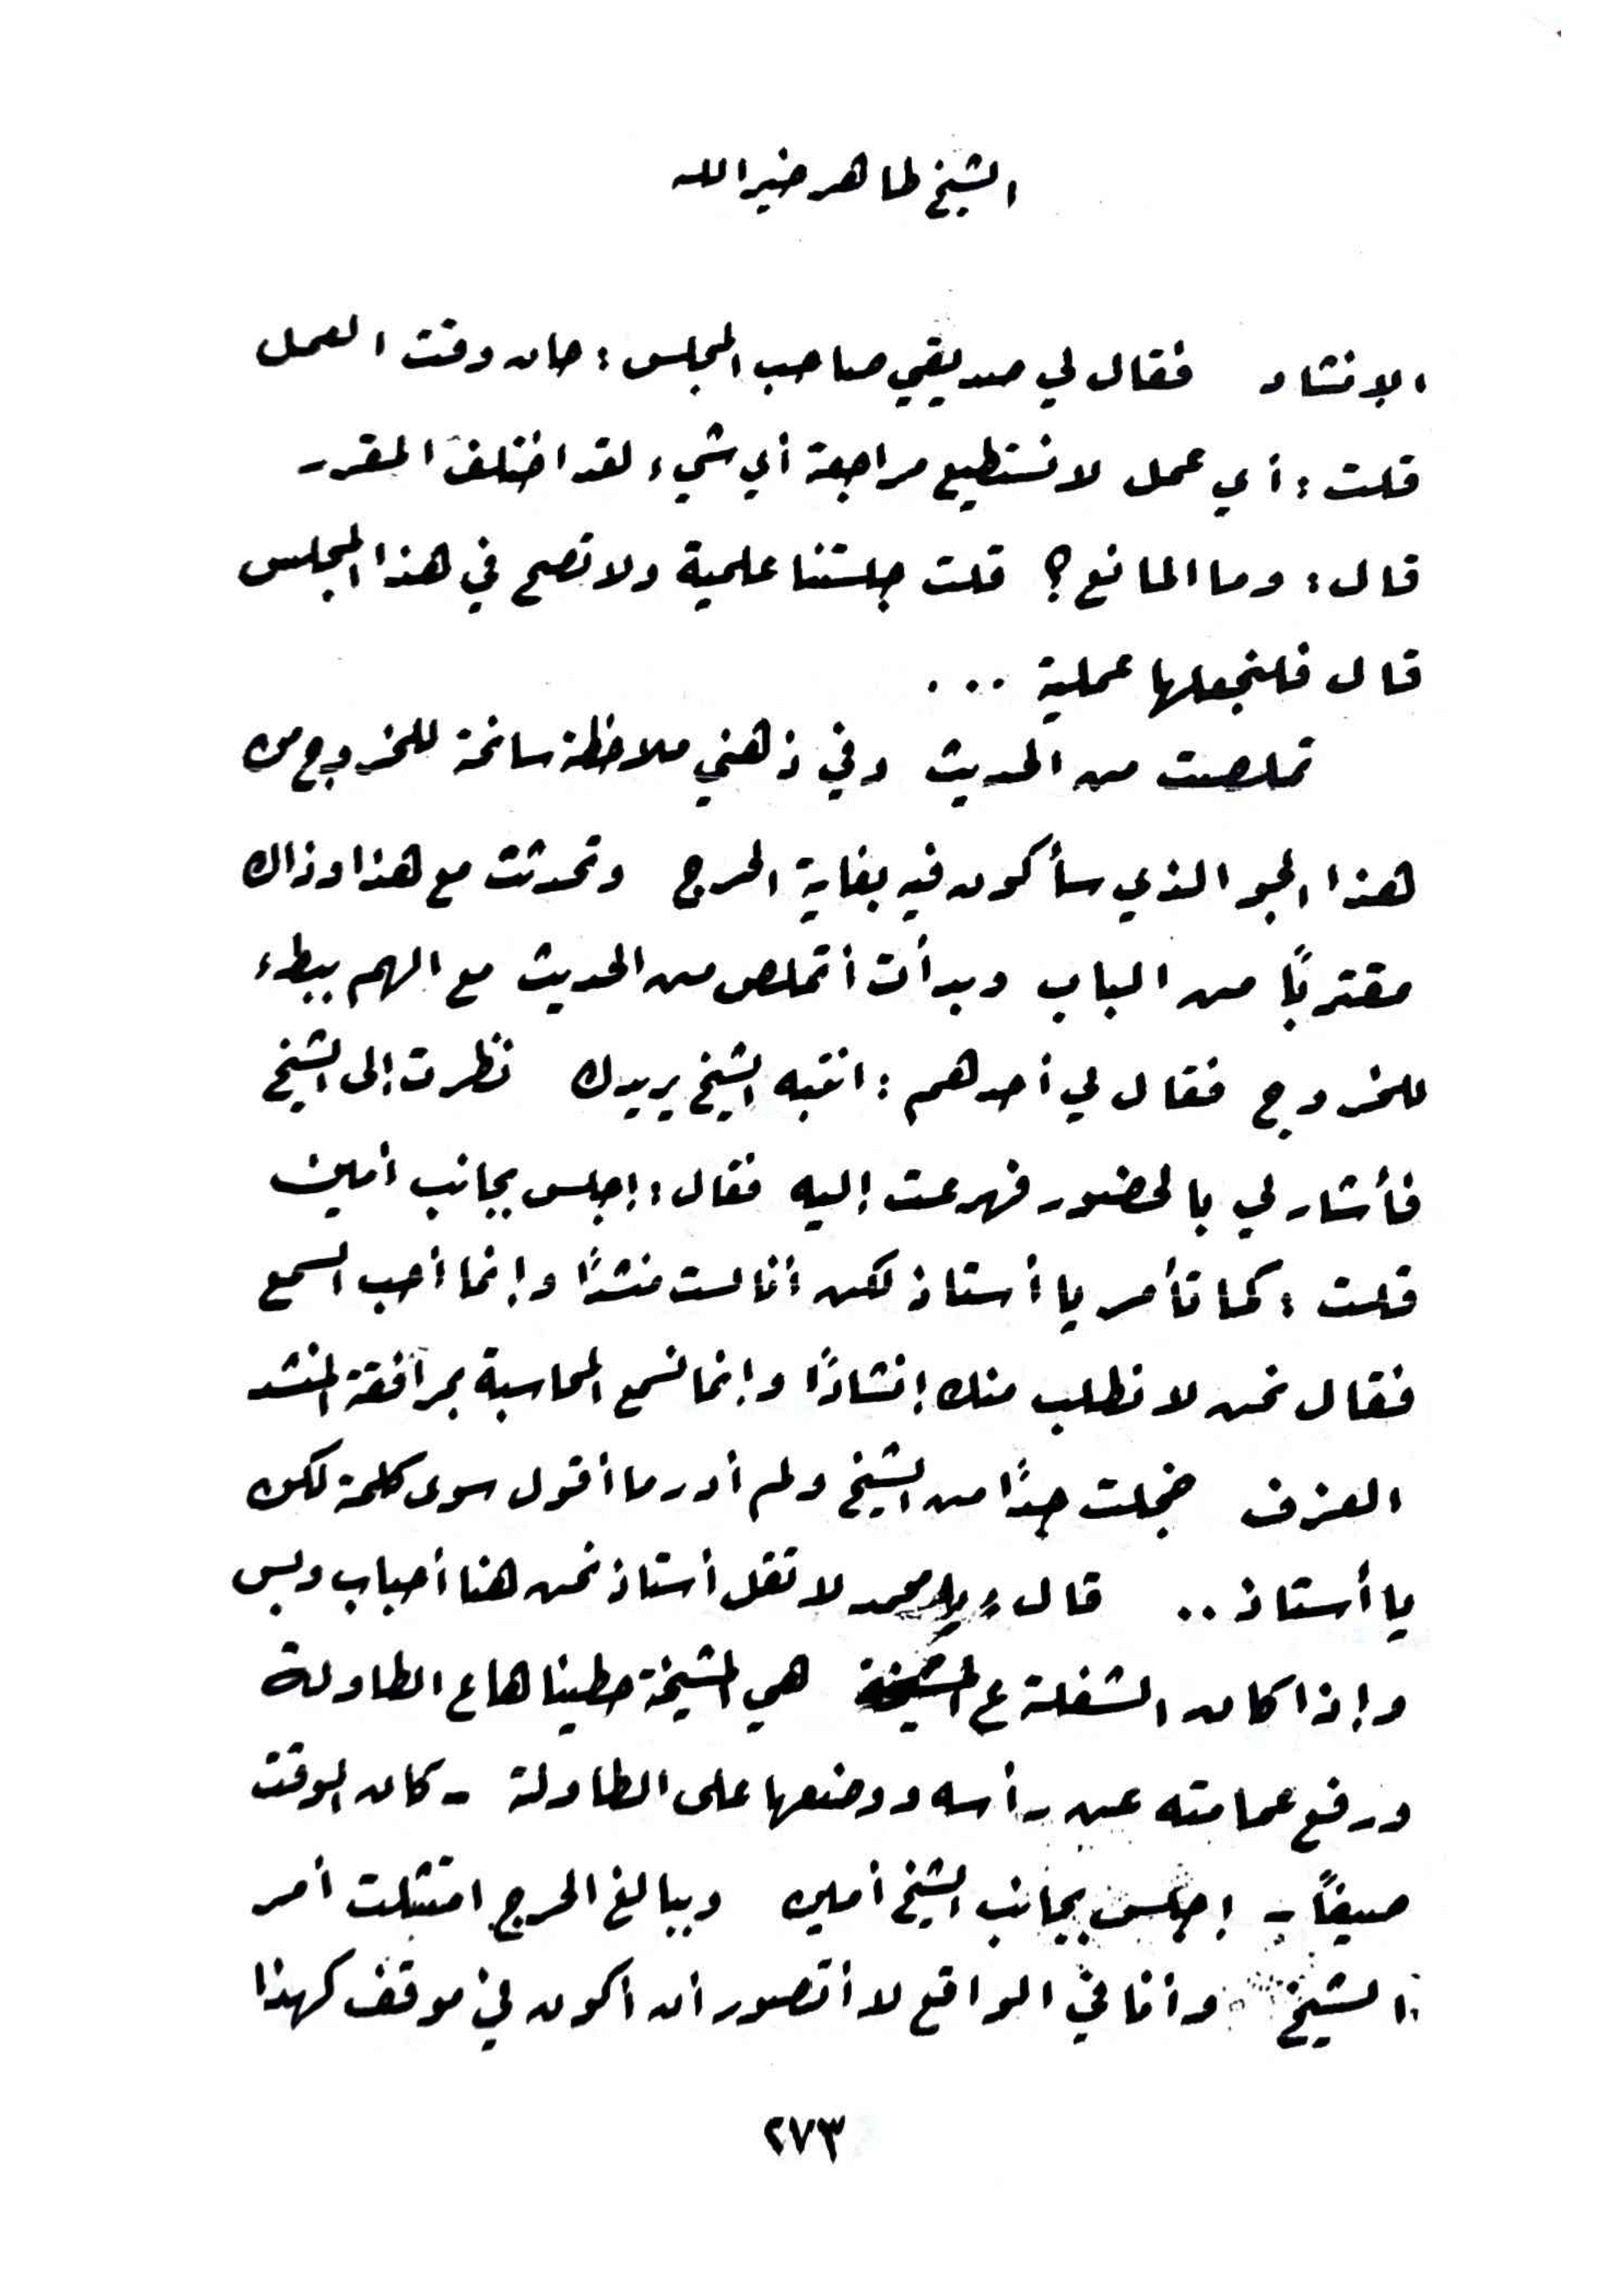 الشيخ طاهر خير الله
الإنشاد فقال لي صديقي صاحب المجلس : حان وقت العمل
قلت : أي عمل لا نستطيع مراجعة أي شيء لقد اختلف المقرر
قال : وما المانع ؟ قلت جلستنا علمية ولا تصح في هذا المجلس
قال فلنجعلها عملية ...
تملصت من الحديث وفي ذهني ملاحظة سانحة للخروج من
هذا الجو الذي سأكون فيه بغاية الحرج وتحدثت مع هذا وذاك
مقتربًا من الباب وبدأت أتملص من الحديث مع الهم ببطء
للخروج فقال لي أحدهم : انتبه الشيخ يريدك نظرت إلى الشيخ
فأشار لي بالحضور فهرعت إليه فقال : إجلس بجانب أمين
قلت : كما تأمر يا أستاذ لكن أنا لست منشدًا وإنما أحب السمع
فقال نحن لا نطلب منك إنشادًا وإنما نسمع المحاسبة بمرافقة المنشد
العزف خجلت جدًا من الشيخ ولم أدر ما أقول سوى كلمة لكن
يا أستاذ .. قال : يا محمد لا تقل أستاذ نحن هنا أحباب وبس
وإذا كان الشغلة ع المشيخة هي المشيخة حطيناها ع الطاولة
ورفع عمامته عن رأسه ووضعها على الطاولة - كان الوقت
صيفًا - إجلس بجانب الشيخ أمين وببالغ الحرج امتثلت أمر
الشيخ وأنا في الواقع لا أتصور أن أكون في موقف كهذا
٢٧٣